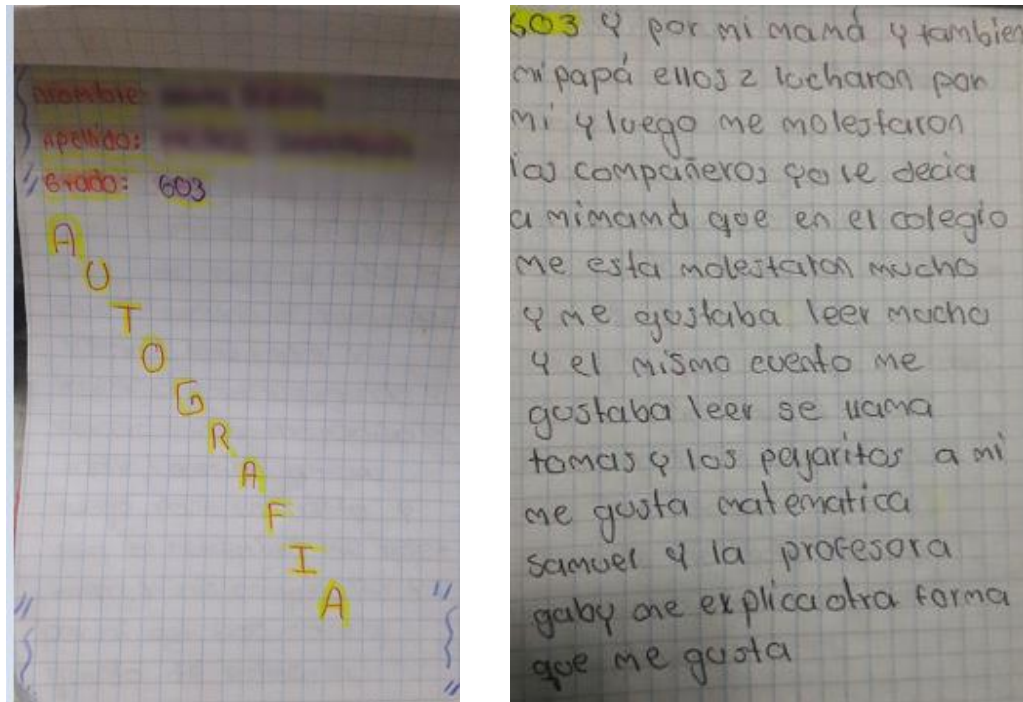 Nombre:
Apellido:
Grado: 603
AUTOGRAFIA
603 y por mi mamá y tambien
mi papá ellos 2 lucharon por
mi y luego me molestaron
los compañeros yo le decia
a mi mamá que en el colegio
me esta molestaron mucho
y me gustaba leer mucho
y el mismo cuento me
gustaba leer se llama
tomas y los pajaritos a mi
me gusta matematica
samuel y la profesora
gaby me explica otra forma
que me gusta